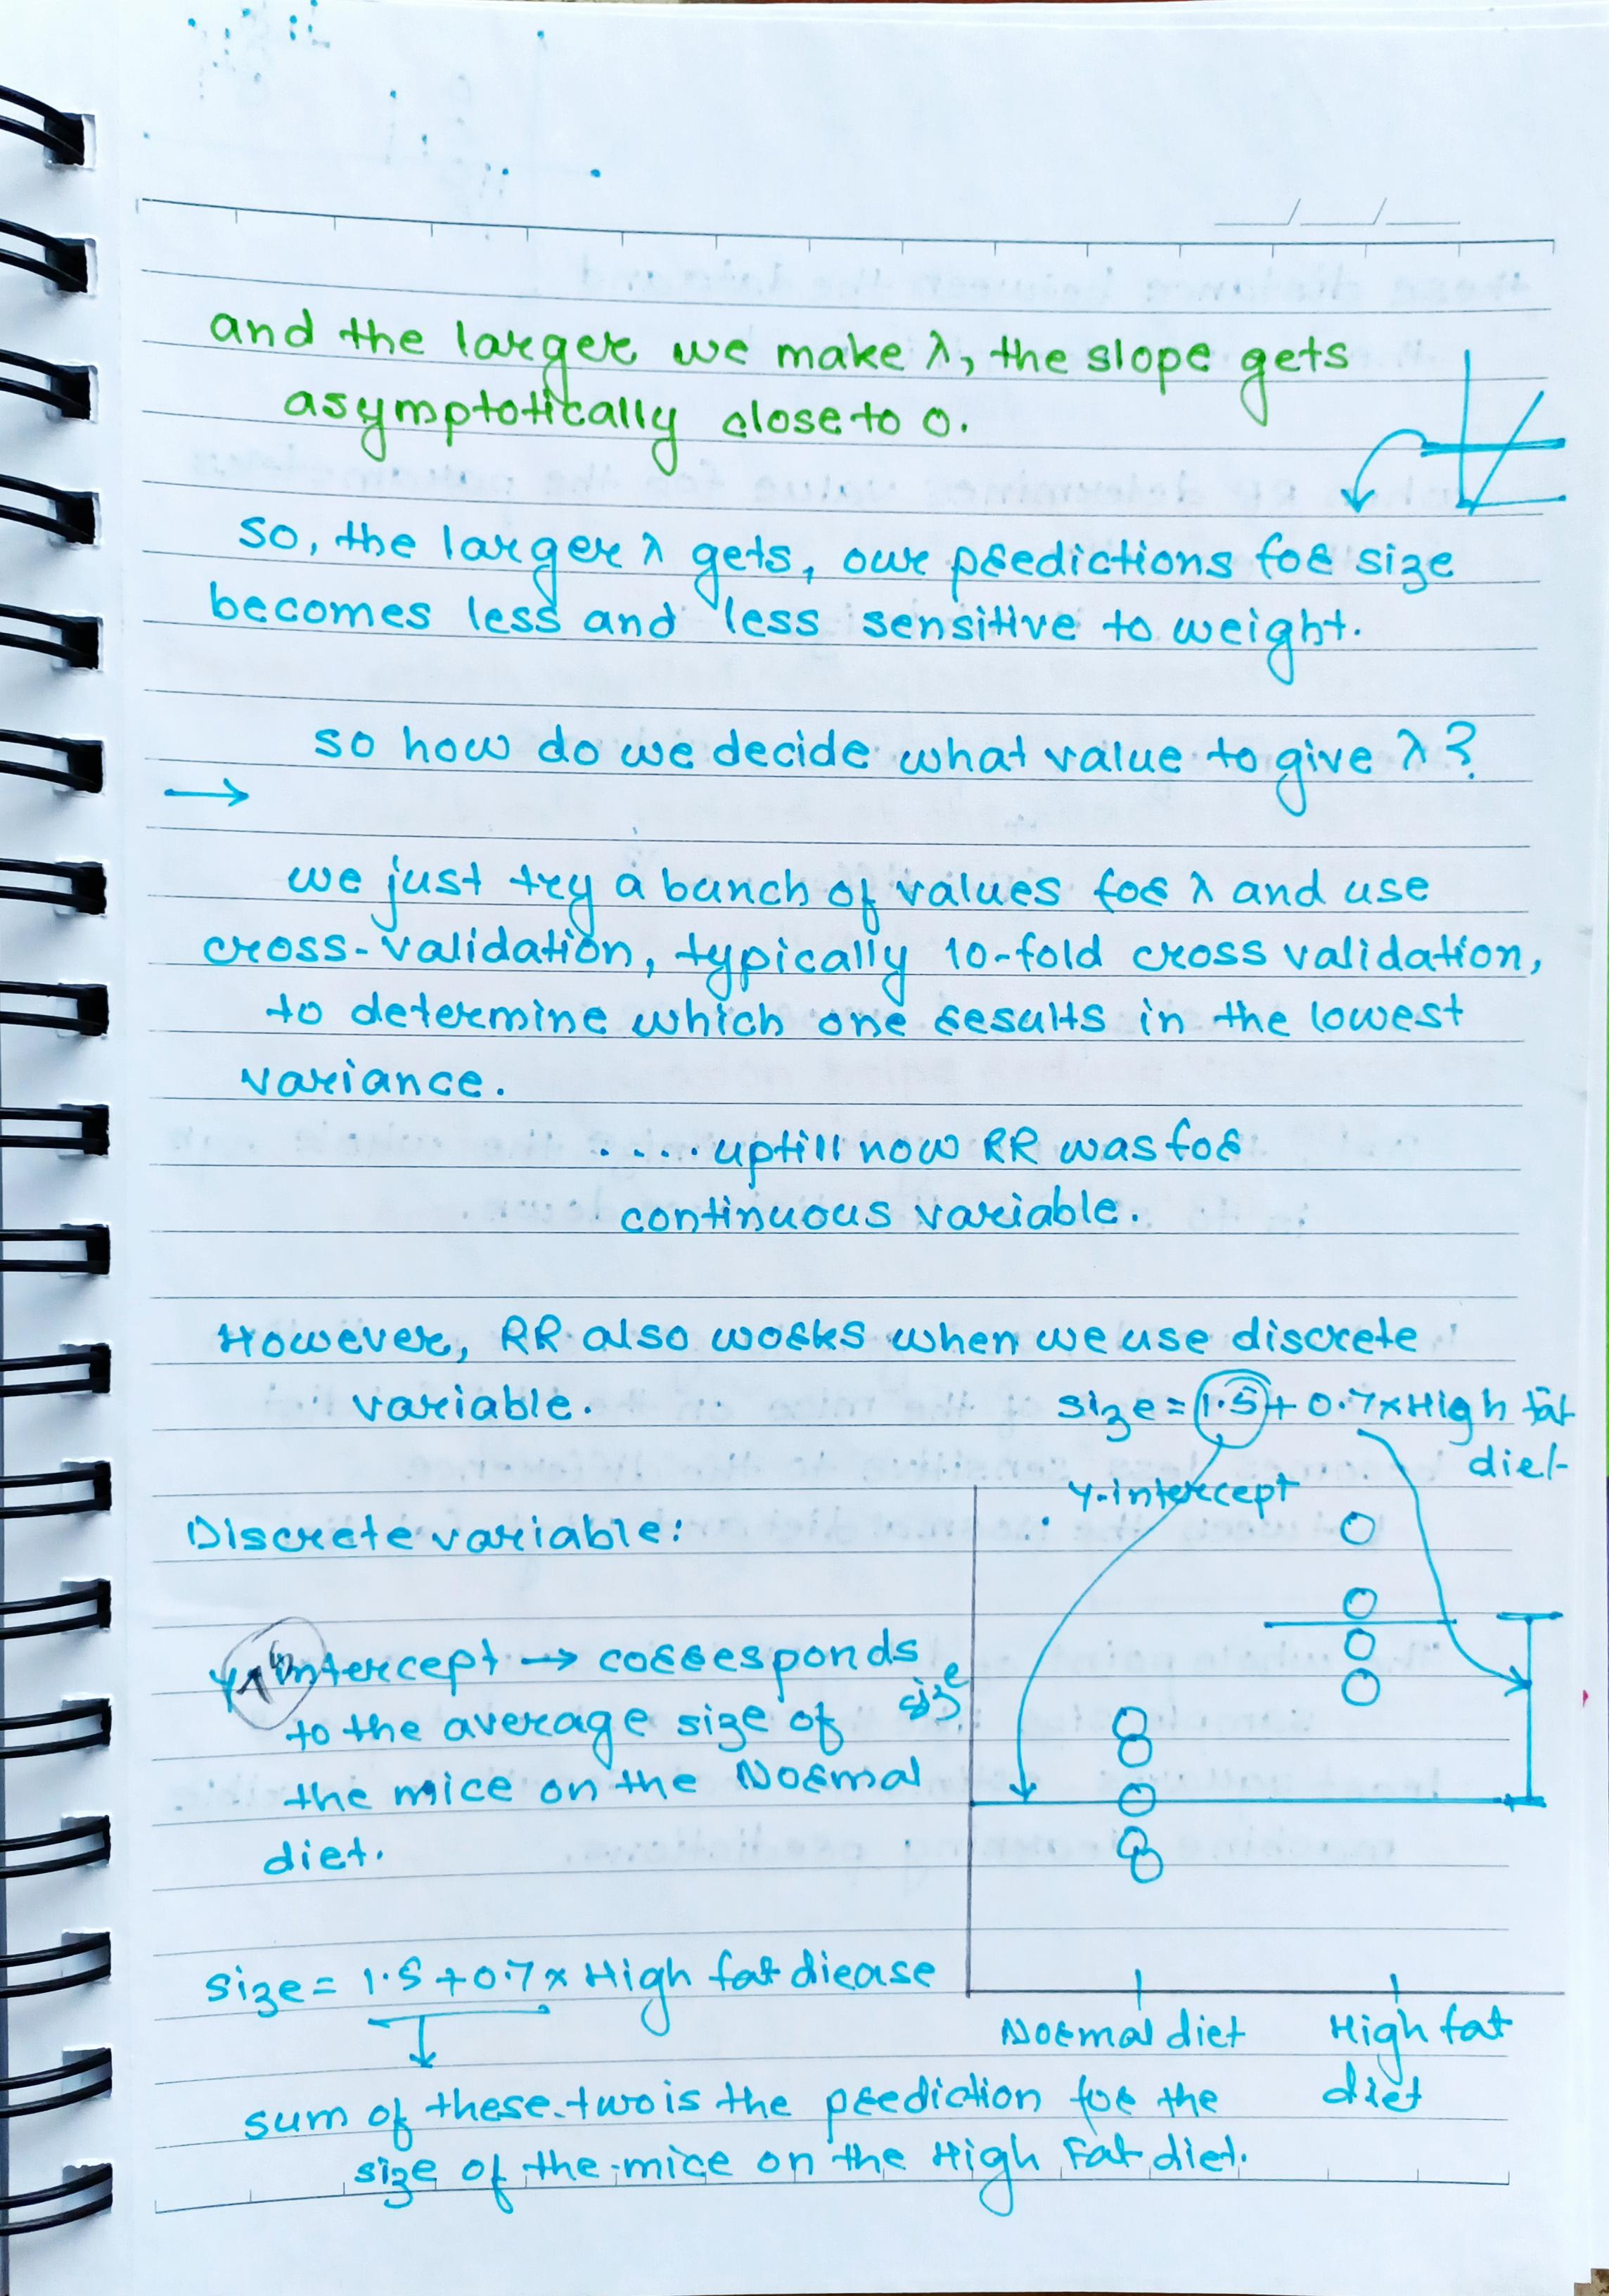 and the larger we make λ, the slope gets
asymptotically close to 0.
so, the larger λ gets, our predictions for size
becomes less and less sensitive to weight.
so how do we decide what value to give λ?
→
we just try a bunch of values for λ and use
cross-validation, typically 10-fold cross validation,
to determine which one results in the lowest
variance.
....uptill now RR was for
continuous variable.
However, RR also works when we use discrete
variable.
size = 1.5 + 0.7 x High fat
diet
Y-intercept
Discrete variable:
Y intercept → corresponds
to the average size of
the mice on the Normal
diet.
size
size = 1.5 + 0.7 x High fat diease
Normal diet
High fat
diet
sum of these two is the prediction for the
size of the mice on the High Fat diet.